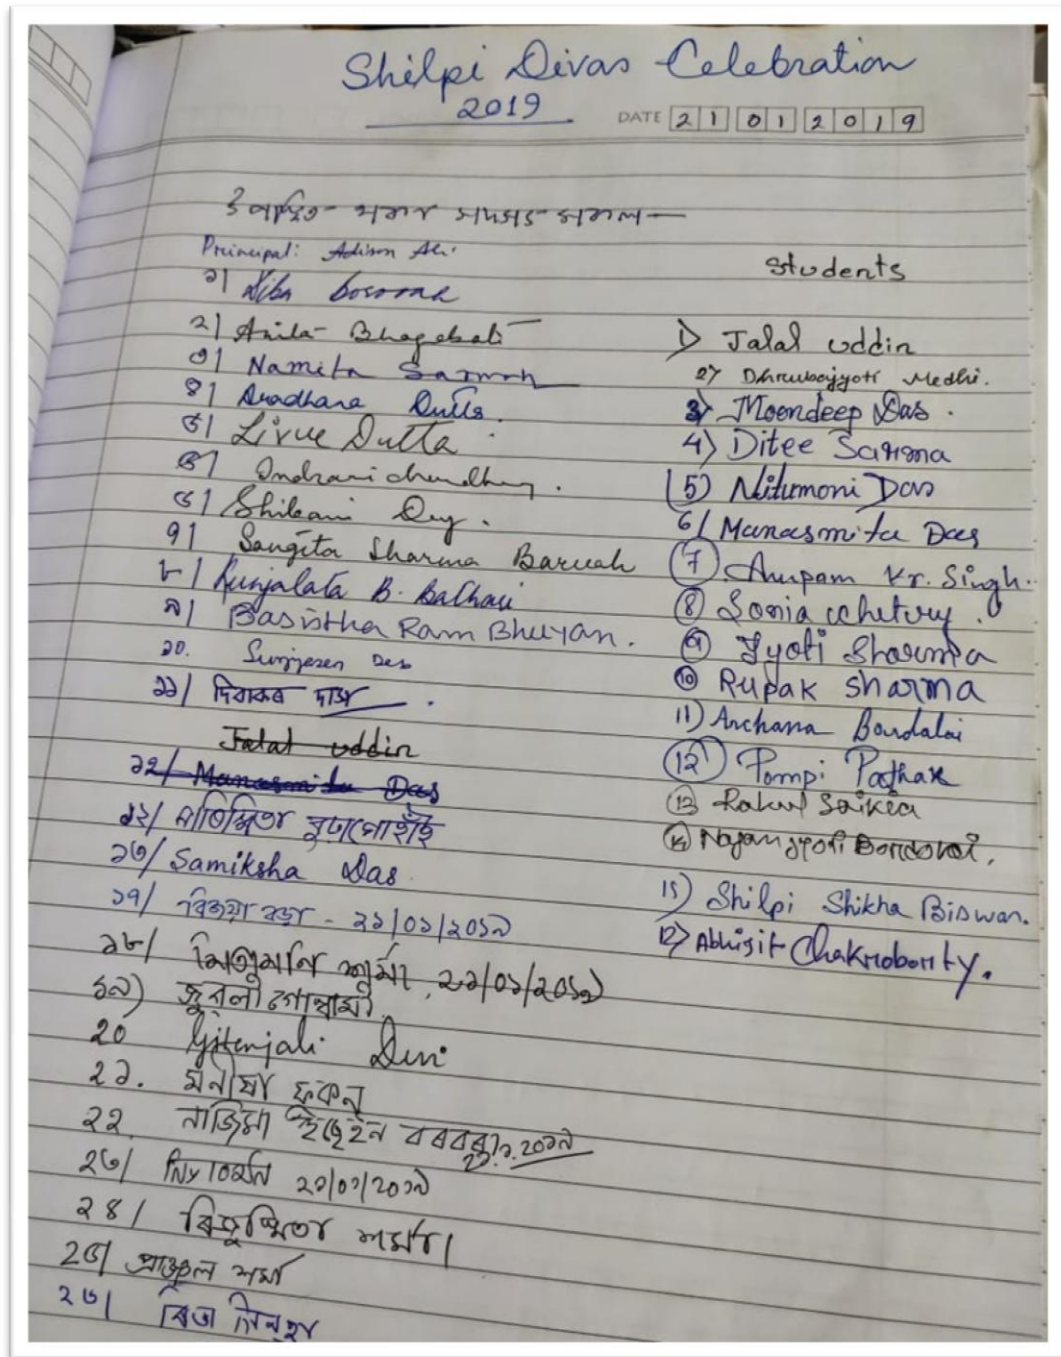 Shilpi Divas Celebration
2019
DATE 21 01 2019
উপস্থিত সভাৰ সদস্যসকল—
Principal: Adison Ali.
১|
২| Anita Bhagabati
৩| Namita Sarmah
৪| Aradhana Dutta.
৫| Livue Dutta
৫| Indrani
৬| Shibani Dey.
৭| Sangita Sharma Baruah
৮| Kunjalata B.
৯| Basistha Ram Bhuyan.
১০. Das
১১/ দিবাকৰ দাস
Jalal uddin
১২/ Manasmita Das
১২/ বুঢ়াগোহাঁই
১৩/ Samiksha Das
১৭/ বিজয়া বড়া - ২১/০১/২০১৯
১৮/ শৰ্মা, ২১/০১/২০১৯
১৯) জুবলী গোস্বামী
20 Gitanjali Devi
২১. মনীষা ফুকন
২২. নাজিমা বৰবৰুৱা ২১.১.২০১৯
২৩/ ২১/০১/২০১৯
২৪/ শৰ্মা।
২৫| শৰ্মা
২৬|
Students
1) Jalal uddin
2) Dhrubajyoti Medhi.
3) Moondeep Das.
4) Ditee Sarma
5) Nitumoni Das
6/ Manasmita Das
7 Anupam Kr. Singh.
8 Sonia Chetury.
9 Jyoti Sharma
10 Rupak Sharma
11) Archana Bordalai
12) Pompi Pathak
13 Rahul Saikia
14 Nayanjyoti Bordoloi.
15) Shilpi Shikha Biswas.
12) Abhijit Chakroborty.